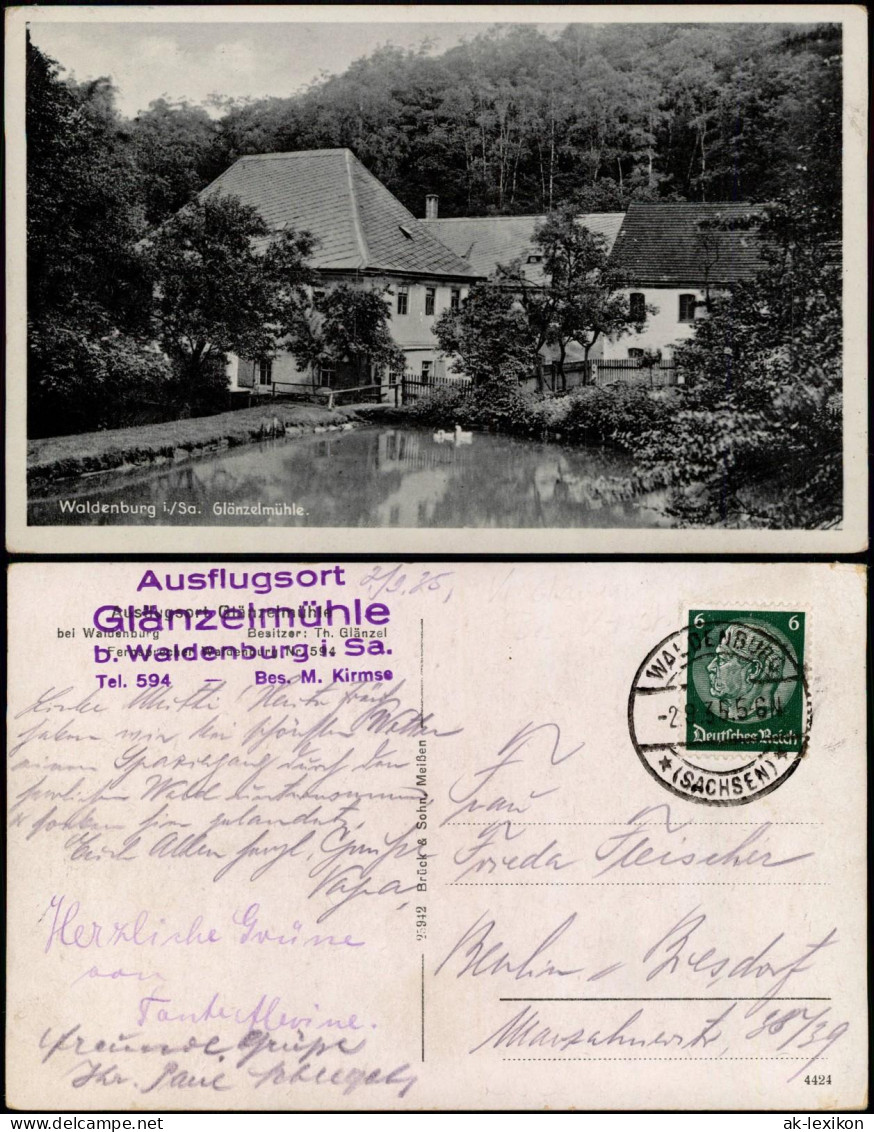 Waldenburg i./Sa. Glänzelmühle.
Ausflugsort
Glänzelmühle
b. Waldenburg i. Sa.
Tel. 594 — Bes. M. Kirmse
Ausflugsort Glänzelmühle
bei Waldenburg Besitzer: Th. Glänzel
Fernsprecher Waldenburg Nr. 594
2/9.35,
Liebe Mutti! Heute früh
haben wir bei schönsten Wetter
einen Spaziergang durch den
herrlichen Wald unternommen
hier gelandet,
Euch Allen herzl. Grüße
Papa
Herzliche Grüne
von
Tante
freundl. Grüße
Paul
25942 Brück & Sohn, Meißen
6 6
Deutsches Reich
WALDENBURG
-2.9.35.5-6N
*(SACHSEN)*
Frau
Frieda Fleischer
Berlin Biesdorf
Marzahnerstr. 38/39
4424
ak-lexikon